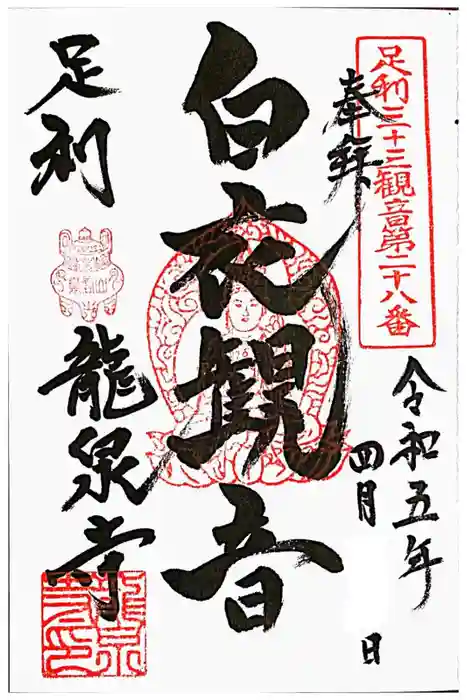 足利三十三観音第二十八番
奉拝
令和五年
四月 日
白衣観音
足利 龍泉寺